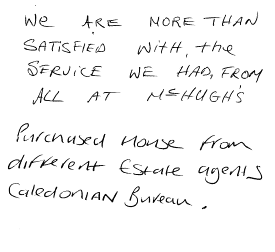 WE ARE MORE THAN
SATISFIED WITH, the
SERVICE WE HAD, FROM
ALL AT McHUGH'S
Purchased House from
different Estate agents
CALEDONIAN Bureau.